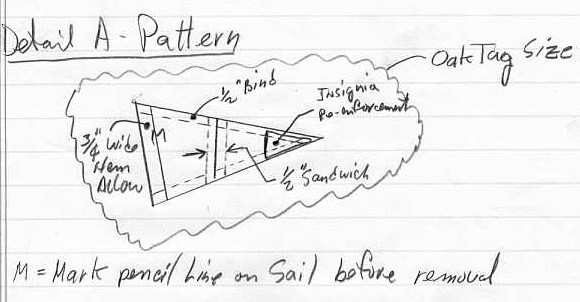 Detail A - Pattern
Oak Tag Size
1/2" Bind
Insignia
Re-enforcement
3/4" Wide
Hem
Allow
M
1/2" Sandwich
M = Mark pencil Line on Sail before removal